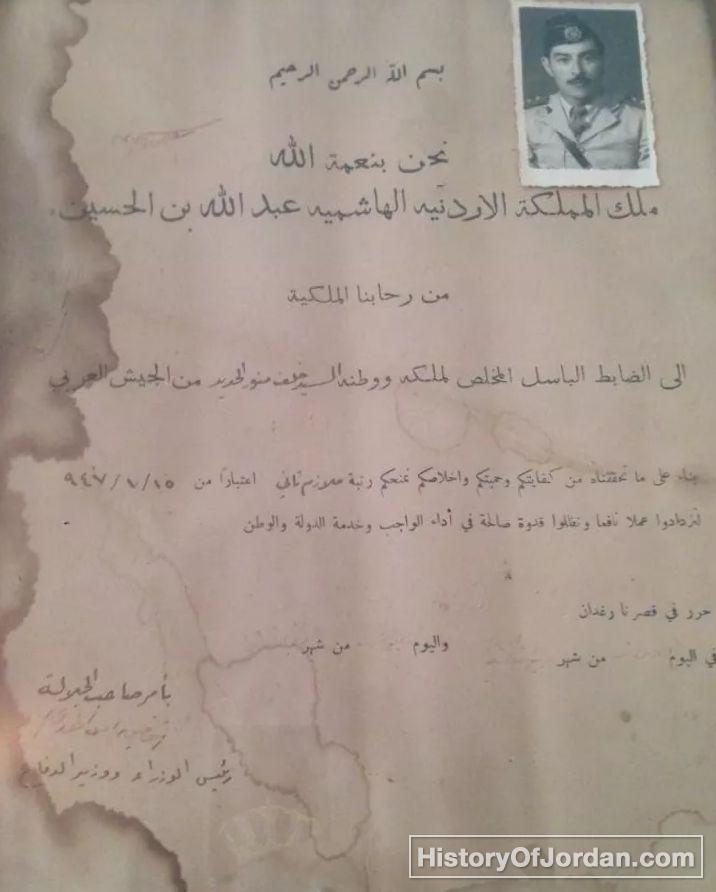 بسم الله الرحمن الرحيم
نحن بنعمة الله
ملك المملكة الاردنيه الهاشميه عبد الله بن الحسين.
من رحابنا الملكية
الى الضابط الباسل المخلص لملكه ووطنه السيد خلف منور الحديد من الجيش العربي
بناء على ما تحققناه من كفايتكم وحميتكم واخلاصكم نمنحكم رتبة ملازم ثاني اعتبارًا من ٩٤٧/١/١٥
لتزدادوا عملا نافعا وتظلوا قدوة صالحة في أداء الواجب وخدمة الدولة والوطن
حرر في قصرنا رغدان
في اليوم من شهر واليوم من شهر
بأمر صاحب الجلالة
رئيس الوزراء ووزير الدفاع
HistoryOfJordan.com